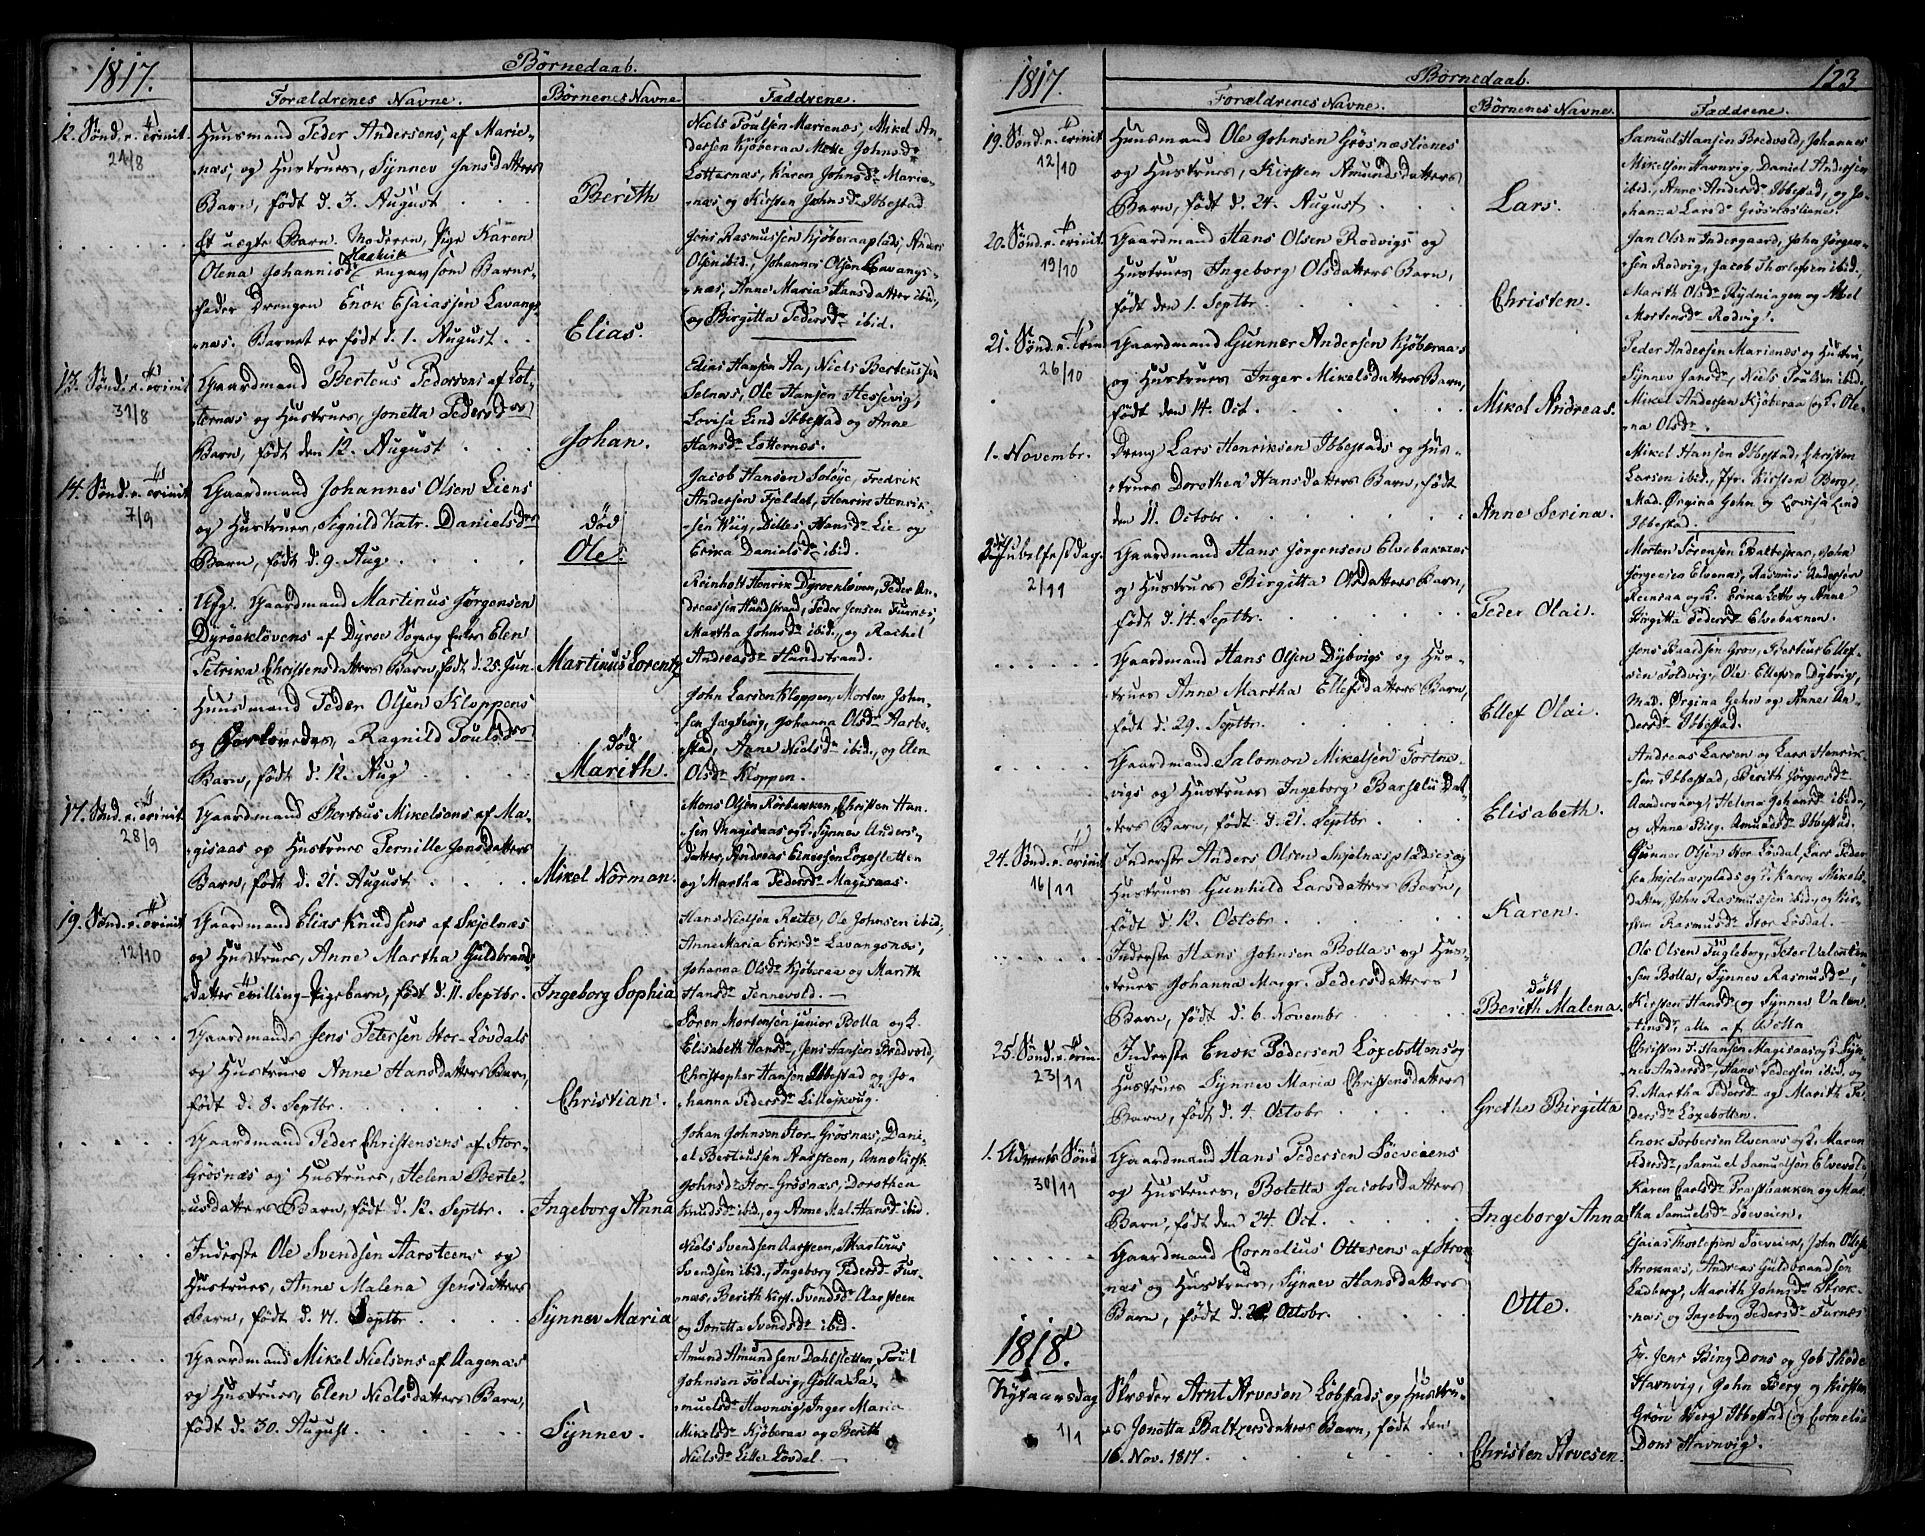 1817.
Børnedaab.
Forældrenes Navne.
Børnenes Navne
Faddrene.
12. Sønd. e. Trinit.
24/8
Huusmand Peder Andersens, af Marie-
næs, og Hustrues, Synnev Jansdatters
Barn, født d. 3. August
Berith
Niels Poulsen Marienæs, Mikel An-
dersen Kjøberaa Mette Johnsdr
Lotternæs, Karen Johnsdr Marie-
næs og Kirsten Johnsdr Ibbestad
Et uægte Barn. Moderen, Pige Karen
Olena Johannisdr Haavik angav som Barne-
fader Drengen Enok Esaiassen Lavangs-
næs. Barnet er født d. 1. August
Elias.
Jens Rasmussen Kjøberaaplads, Anders
Olsen ibid., Johannes Olsen Lavangs-
næs, Anne Maria Hansdatter ibid,
og Birgitta Pedersdr ibid.
13. Sønd. e. Trinit
31/8
Gaardmand Berteus Pedersens af Lot-
ternæs og Hustrues, Jonetta Pedersdrs
Barn, født den 12. August
Johan.
Edias Hansen Aa, Niels Berteussen
Selnæs, Ole Hansen Hessevig,
Lovisa Lind Ibbestad og Anne
Hansdr Lotternæs.
14. Sønd. e. Trinit
7/9
Gaardmand Johannes Olsen Liens
og Hustrues, Segnild Katr. Danielsdrs
Barn, født d. 9. Aug.
død
Ole.
Jacob Hansen Soløye, Fredrik
Andersen Fjeldal, Henrik Henrik-
sen Wiig, Dilles Hansdr Lie og
Erika Danielsdr ibid.
Afg. Gaardmand Martinus Jørgensen
Dyrøekløvens af Dyrøe Sogn og Enke Elen
Petrika Christensdatters Barn, født d. 25. Jun.
Martinus Lorentz
Reinholt Henrik Dyrøekløven, Peder An-
dreassen Hundstrand, Peder Jensen Furnæs,
Martha Johnsdr ibid., og Rachel
Andreasdr Hundstrand.
Huusmand Peder Olsen Kloppens
og Ragnild Poulsdrs
Barn, født d. 12. Aug
død
Marith.
John Larsen Kloppen, Morten John-
sen Johanna Olsdr Aarbo-
stad, Anne Nielsdr ibid., og Elen
Olsdr Kloppen.
17. Sønd. e. Trinit
28/9
Gaardmand Berteus Mikelsens af Ma-
gisaas og Hustrues Pernille Jensdatters
Barn, født d. 21. August
Mikel Norman.
Mons Olsen Rørbakken, Christen Han-
sen Magisaas og K. Synnev Anders-
datter, Andreas Løxesletten
og Martha Pedersdr Magisaas.
19. Sønd. e. Trinit
12/10
Gaardmand Elias Knudsens af Skjelnæs
og Hustrues, Anne Martha Guldbrands-
datter Tvilling-Pigebarn, født d. 11. Septbr.
Ingeborg Sophia
Hans Nielsen Røite, Ole Johnsen ibid,
Anne Maria Eriksdr Lavangsnæs,
Johanna Olsdr Kjøberaa og Marith
Hansdr Tennevold.
Gaardmands Jens Petersen Stor-Løvdals
og Hustrues Anne Hansdatters Barn,
født d. 8. Septbr.
Christian.
Søren Mortensen junior Bolla og K.
Elisabeth Hansdr, Jens Hansen Bredvold,
Christopher Hansen Ibbestad og Jo-
hanna Pedersdr
Gaardmand Peder Christensens af Stor-
Grøsnæs og Hustrues, Helena Berte-
usdatters Barn, født d. 12. Septbr.
Ingeborg Anna
Johan Johnsen Stor-Grøsnæs, Dani-
el Berteussen Aarsteen, Anne Kirst.
Johnsdr Stor-Grøsnæs, Dorothea
Knudsdr ibid, og Anne Mal. Hansdr ibid.
Inderste Ole Svendsen Aarsteens og
Hustrues, Anne Malena Jensdatters
Barn, født d. 17. Septbr
Synnev Maria
Niels Svendsen Aarsteen, Martinus
Svendsen ibid., Ingeborg Pedersdr Fur-
næs, Berith Kirst. Svendsdr Aarsteen
og Jonetta Svendsdr ibid.
Gaardmand Mikel Nielsens af Aagenæs
og Hustrues, Elen Nielsdatters Barn,
født d. 30. August.
Synnev.
Amund Amundsen Dahlsletten, Poul
Johnsen Foldvig, Golla Sa-
muelsdr Havnvig, Inger Maria
Mikelsdr Kjøberaa og Berith
Nielsdr Lille Løvdal
1817.
Børnedaab.
123
Forældrenes Navne.
Børnenes Navne.
Faddrene.
19. Sønd. e. Trinit
12/10
Huusmand Ole Johnsen Grøsnæslienes
og Hustrues, Kirsten Amundsdatters
Barn, født d. 24. August
Lars.
Samuel Hansen Bredvold, Johannes
Mikelsen Havnvig, Daniel Andersen
ibid., Anne Andersdr Ibbestad, og Jo-
hanna Larsdr Grøsnæslien.
20. Sønd. e. Trinit.
19/10
Gaardmand Hans Olsen Rodvigs og
Hustrues Ingeborg Olsdatters Barn,
født den 1. Septbr.
Christen.
Jan Olsen Indergaard, John Jørgen-
sen Rodvig, Jacob Thorlefsen ibid.,
Marith Olsdr Rydningen og Abel
Mortensdr Rodvig.
21. Sønd. e. Trin
26/10
Gaardmand Gunner Andersen Kjøberaas
og Hustrues Inger Mikelsdatters Barn,
født den 14. Oct.
Mikel Andreas.
Peder Andersen Marienæs og Hustru,
Synnev Jansdr, Niels Poulsen ibid.
Mikel Andersen Kjøberaa og K. Ole-
na Olsdr.
1. Novembr.
Dreng Lars Henriksen Ibbestads og Hus-
trues Dorothea Hansdatters Barn, født
den 11. Octobr
Anne Serina.
Mikel Hansen Ibbestad, Christen
Larsen ibid., Jfr. Kirsten Berg,
Mad. Ørgina Gehn og Lovisa Lind
Ibbestad.
Jubelfestdag.
2/11
Gaardmand Hans Jørgensen Elvebakkens
og Hustrues Birgitta Olsdatters Barn,
født d. 14. Septbr.
Peder Olai.
Morten Sørensen Baltestjar, John
Jørgensen Elvenæs, Rasmus Andersen
Reinsaa og K. Erika Lotte og Anne
Birgitta Pedersdr Elvebakken.
Gaardmand Hans Olsen Dybvigs og Hus-
trues Anne Martha Ellefsdatters Barn,
født d. 29. Septbr.
Ellef Olai.
Jens Baardsen Grov, Berteus Ellef-
sen Foldvig, Ole Ellefsen Dybvig,
Mad. Ørgina Gehn og Anne An-
dersdr Ibbestad.
Gaardmand Salomon Mikelsen Forten-
vigs og Hustrues Ingeborg Barselii Dat-
ters Barn, født d. 21. Septbr
Elisabeth.
Andreas Larsen og Lars Henrik-
sen Ibbestad, Berith Jørgensdr
Aandervaag, Helena Johansdr ibid.,
og Anne Birg. Amundsdr Ibbestad.
24. Sønd. e. Trinit
16/11
Inderste Anders Olsen Skjelnæspladses og
Hustrues Gunhild Larsdatters Barn,
født d. 12. Octobr
Karen.
Gunner Olsen Stor Løvdal, Lars Peder-
sen Skjelnæsplads og K. Karen Mikels-
datter, John Rasmussen ibid., og Kir-
sten Rasmusdr Stor Løvdal.
Inderste Hans Johnsen Bollas og Hus-
trues Johanna Margr. Pedersdatters
Barn, født d. 6. Novembr
død
Berith Malena.
Ole Olsen Fugleberg, Peter Valentin-
sen Bolla, Synnev Rasmusdr,
Kirsten Hansdr og Synnev Valen-
tinsdr, alle af Bolla
25. Sønd. e. Trin.
23/11
Inderste Enok Pedersen Løxebottens og
Hustrues Synnev Maria Christensdatters
Barn, født d. 4. Octobr
Grethe Birgitta
Christen J. Hansen Magisaas og K. Syn-
nev Andersdr, Hans Pedersen ibid. og
K. Martha Pedersdr og Marith Pe-
dersdr Løxebotten.
1. Advents Sønd.
30/11
Gaardmand Hans Pedersen Søeveiens
og Hustrues, Boletta Jacobsdatters
Barn, født den 24. Oct.
Ingeborg Anna
Enok Torbersen Elvenæs og K. Maren
Pedersdr, Samuel Samuelsen Elvevold,
Karen Carlsdr Præstbakken og Mar-
tha Samuelsdr Søeveien.
Gaardmand Cornelius Ottesens af Strok-
næs og Hustrues, Synnev Hansdatters
Barn, født d. Octobr.
Otte.
Esaias Thorlefsen Søeveien, John Ottesen
Stroknæs, Andreas Guldbrandsen
Ladberg, Marith Johnsdr Strok-
næs og Ingeborg Pedersdr Furnæs
1818.
Nytaarsdag
1/1
Skræder Arnt Arvesen Løbstads og Hustru-
es Jonetta Baltzersdatters Barn, født den
16. Nov. 1817.
Christen Arvesen.
Hr. Jens Bing Dons og Job Thode
Havnvig, John Berg og Kirsten
Grøn Berg Ibbestad og Cornelia
Dons Havnvig.